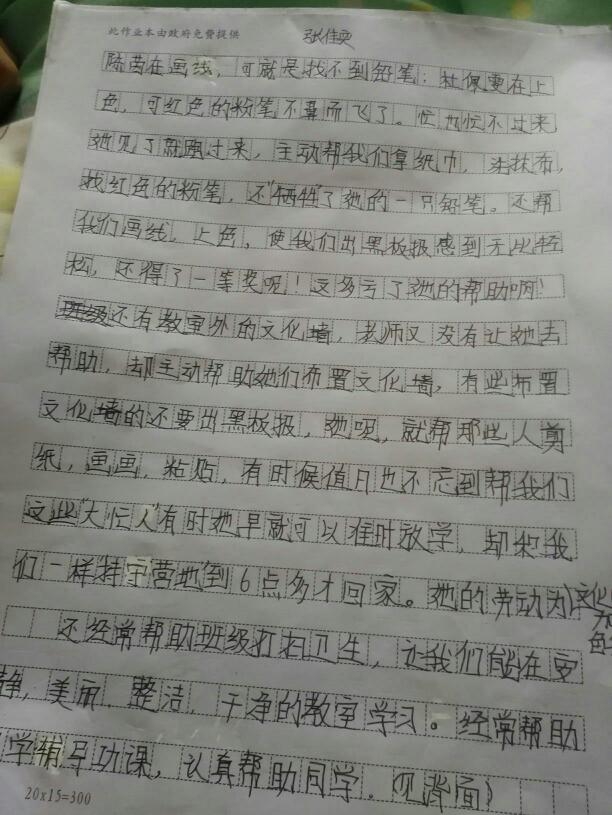 此作业本由政府免费提供
陈茜在画线，可就是找不到铅笔；杜佩雯在上
色，可红色的粉笔不翼而飞了。忙也忙不过来，
她见了就跑过来，主动帮我们拿纸巾，抹布，
找红色的粉笔，还“牺牲”了她的一只铅笔。还帮
我们画线，上色，使我们出黑板报感到无比轻
松，还得了一等奖呢！这多亏了她的帮助啊！
班级还有教室外的文化墙，老师又没有让她去
帮助，却主动帮助她们布置文化墙，有些布置
文化墙的还要出黑板报，她呢，就帮那些人剪
纸，画画，粘贴，有时候值日也不忘到帮我们
这些“大忙人”有时她早就可以准时放学，却和我
们一样持守营地到6点多才回家。她的劳动为文化
还经常帮助班级打扫卫生，让我们能在安
静，美丽，整洁，干净的教室学习。经常帮助
学辅导功课，认真帮助同学。（见背面）
20x15=300